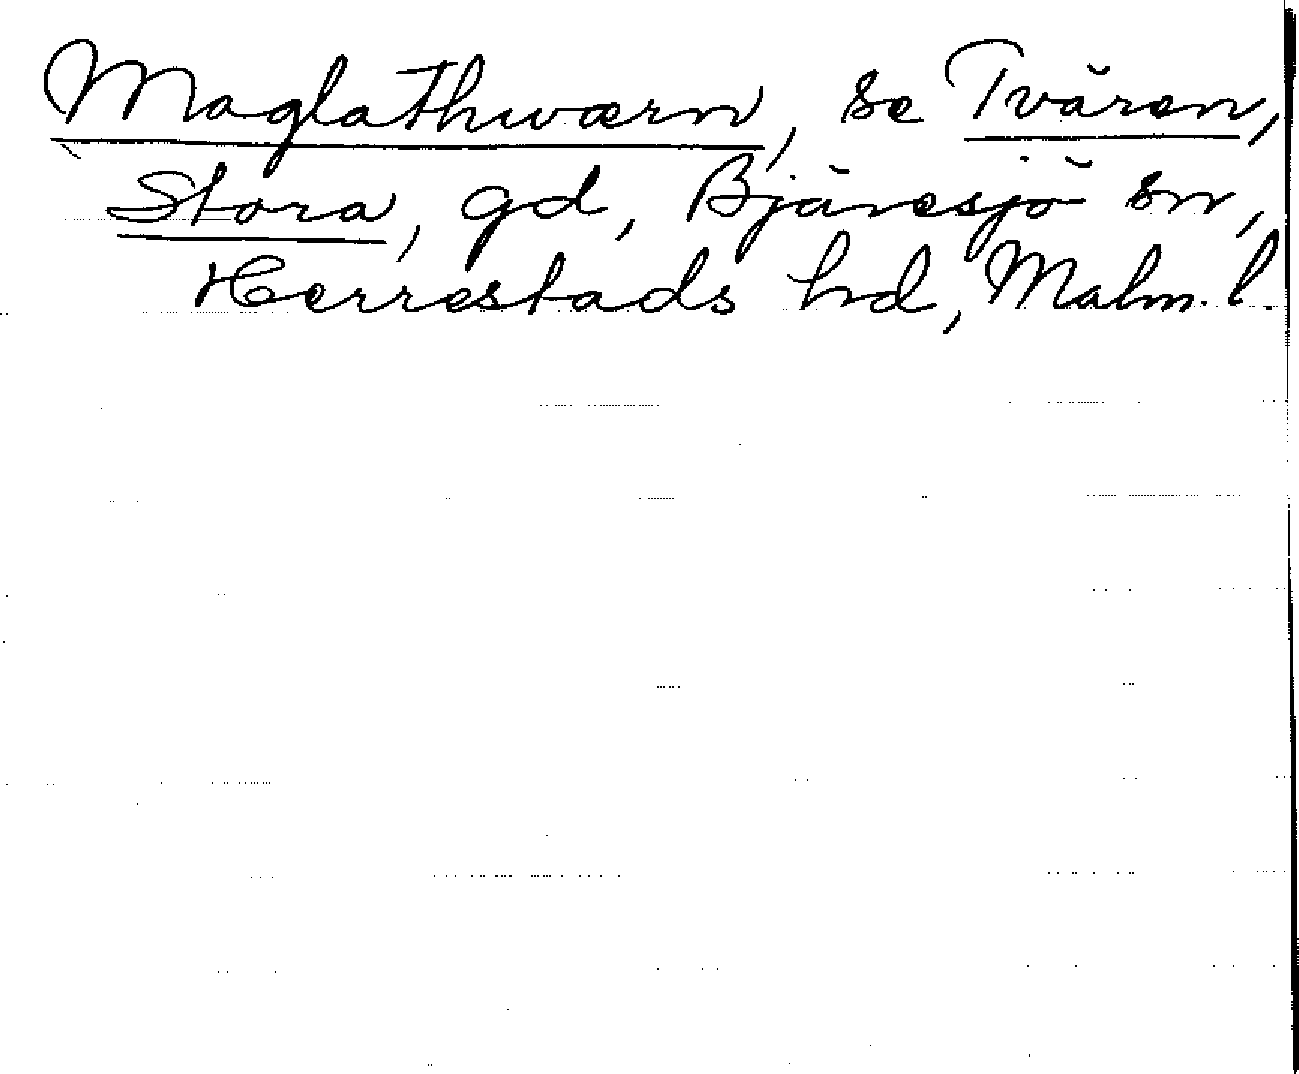 Maglathwærn, se Tvären,
Stora, gd, Bjäresjö sn,
Herrestads hd, Malm. l.